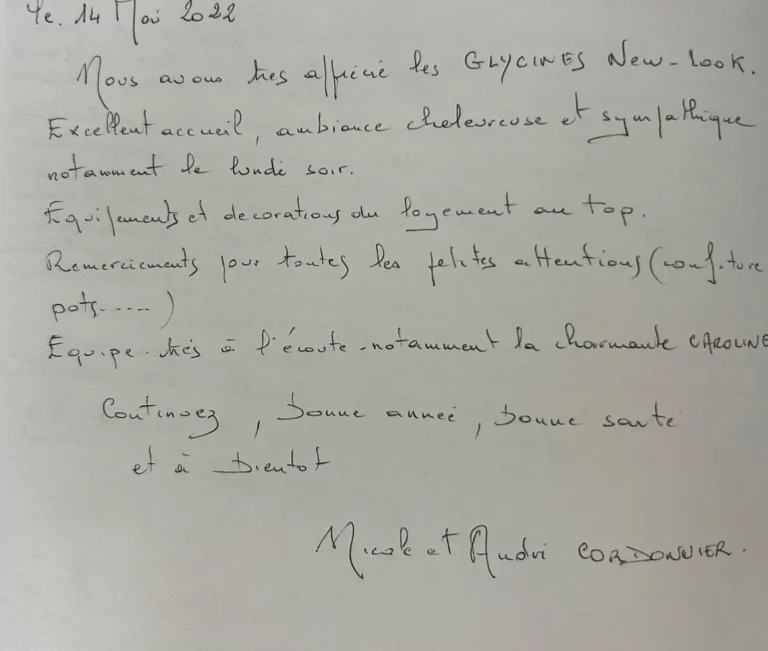 Le. 14 Mai 2022
Nous avons très apprécié les GLYCINES New-look.
Excellent accueil, ambiance cheleureuse et sympathique
notamment le lundi soir.
Equipements et decorations du logement au top.
Remerciements pour toutes les petites attentions (confiture
pots.....)
Equipe très à l'écoute - notamment la charmante CAROLINE
Continuez, bonne année, bonne sante
et à bientot
Nicole et André CORDONNIER.